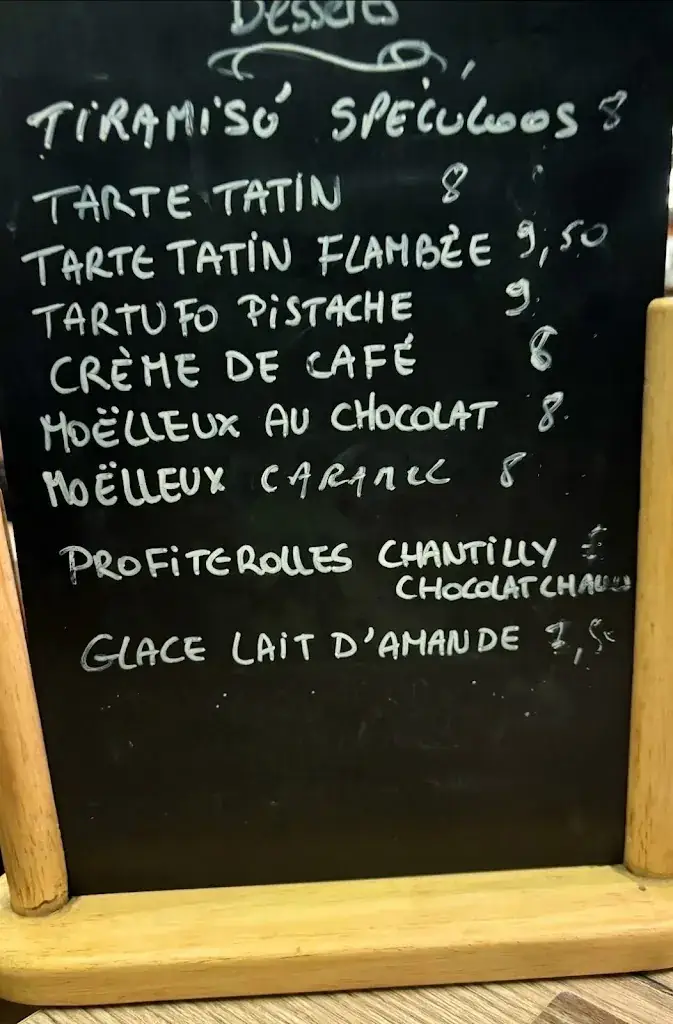 Desserts
TiRAMiSÚ SPÉCULOOS 8
TARTE TATIN 8
TARTE TATIN FLAMBÉE 9,50
TARTUFO PISTACHE 9
CRÈME DE CAFÉ 8
MOËLLEUX AU CHOCOLAT 8
MOËLLEUX CARAMEL 8
PROFITEROLLES CHANTILLY
CHOCOLAT CHAUD
GLACE LAIT D'AMANDE